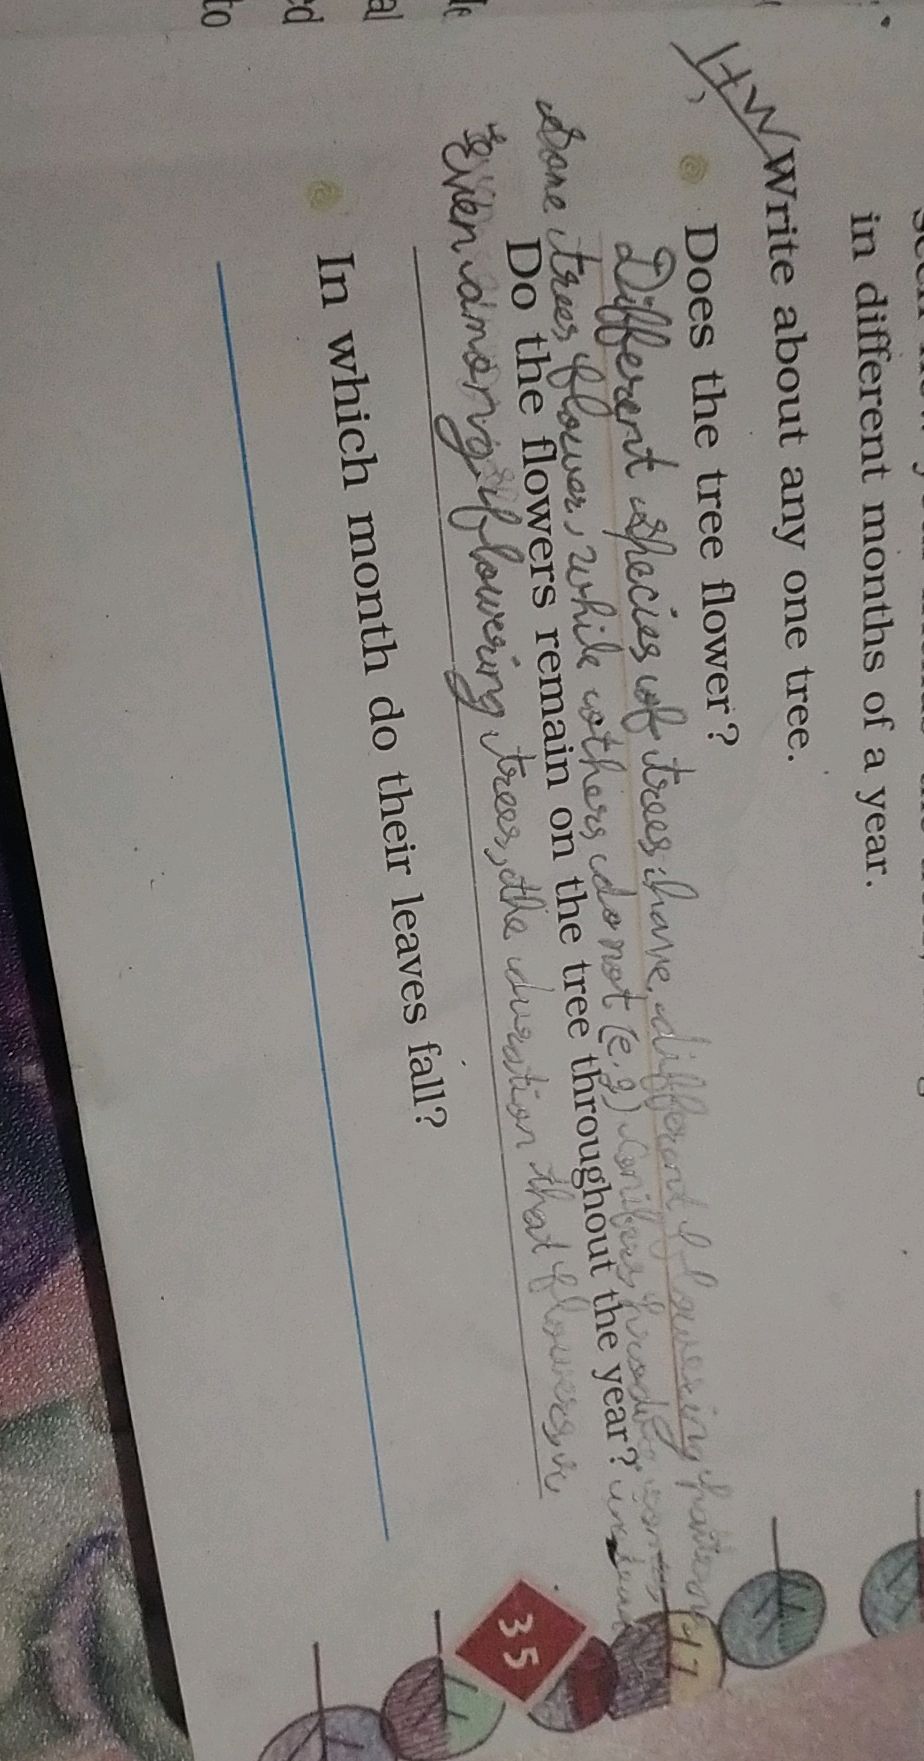 in different months of a year.
HW
Write about any one tree.
Does the tree flower?
Different species of trees have different flowering pattern
some trees flower, while others do not (e.g) Conifers produce cones instead
Do the flowers remain on the tree throughout the year?
Even among flowering trees, the duration that flowers
In which month do their leaves fall?
35
47
al
ed
to